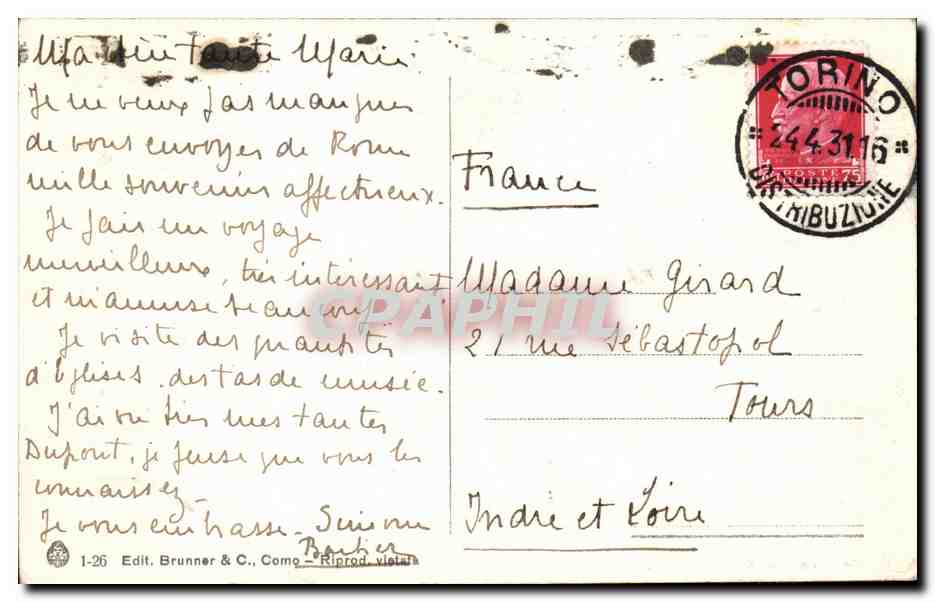 Ma bien tante Marie
Je ne veux pas manquer
de vous envoyer de Rome
mille souvenirs affectueux.
Je fais un voyage
merveilleux, très intéressant
et m'amuse beaucoup
Je visite des quantités
d'Eglises, des tas de musée.
J'ai vu hier mes tantes
Dupont, je pense que vous les
connaissez
Je vous embrasse - Simone
1-26 Edit. Brunner & C., Como - Riprod. vietata
TORINO
24.4.31.16
DISTRIBUZIONE
POSTE 75
France
Madame Girard
21 rue Sébastopol
Tours
Indre et Loire
CPAPHIL